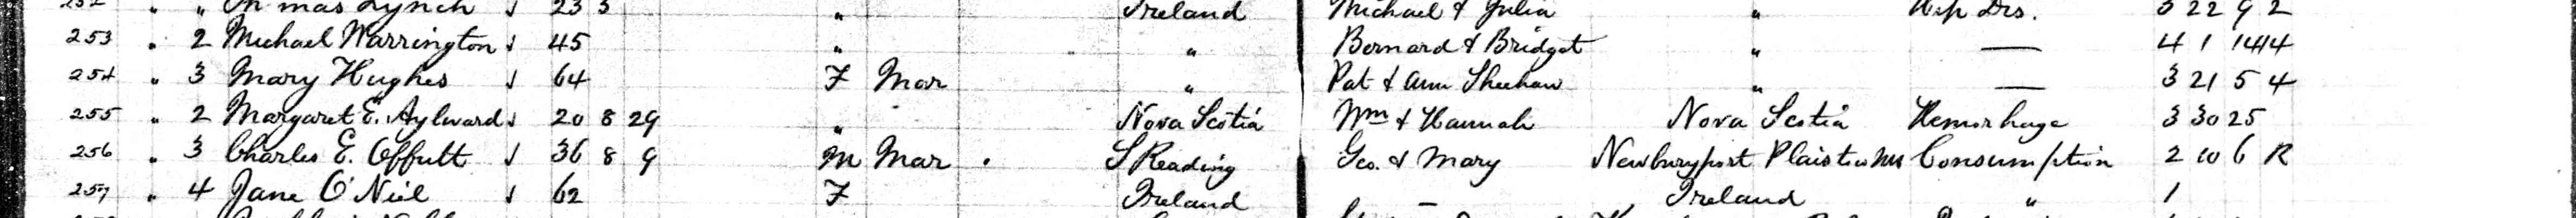 252 " " Thomas Lynch √ 23 3 " Ireland Michael & Julia " Hip Dis. 3 22 9 2
253 " 2 Michael Warrington √ 45 " " Bernard & Bridget " — 4 1 14 14
254 " 3 Mary Hughes √ 64 F Mar " Pat & Ann Sheehan " — 3 21 5 4
255 " 2 Margaret E. Aylward √ 20 8 29 " Nova Scotia Wm & Hannah Nova Scotia Hemorhage 3 30 25
256 " 3 Charles E. Offutt √ 36 8 9 M Mar S Reading Geo. & Mary Newburyport Plaistow NH Consumption 2 10 6 R
257 " 4 Jane O'Neil √ 62 F Ireland — Ireland " 1